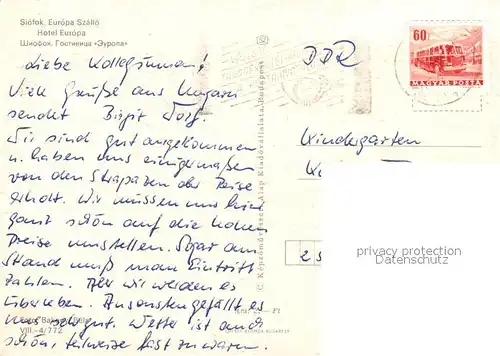 Siófok, Európa Szálló
Hotel Európa
Шиофок, Гостиница «Эуропа»
Liebe Kolleginnen!
Viele Grüße aus Ungarn
sendet Birgit
Wir sind gut angekommen
u. haben uns einigermaßen
von den Strapazen der Reise
erholt. Wir müssen uns hier
ganz schön auf die hohen
Preise umstellen. Sogar am
Strand muß man Eintritt
zahlen. Aber wir werden es
überleben. Ansonsten gefällt es
uns sehr gut. Wetter ist auch
schön, teilweise fast zu warm.
VIII.-4/772
C. Képzőművészeti Alap Kiadóvállalata, Budapest
60
MAGYAR POSTA
DDR
Kindergarten
privacy protection
Datenschutz